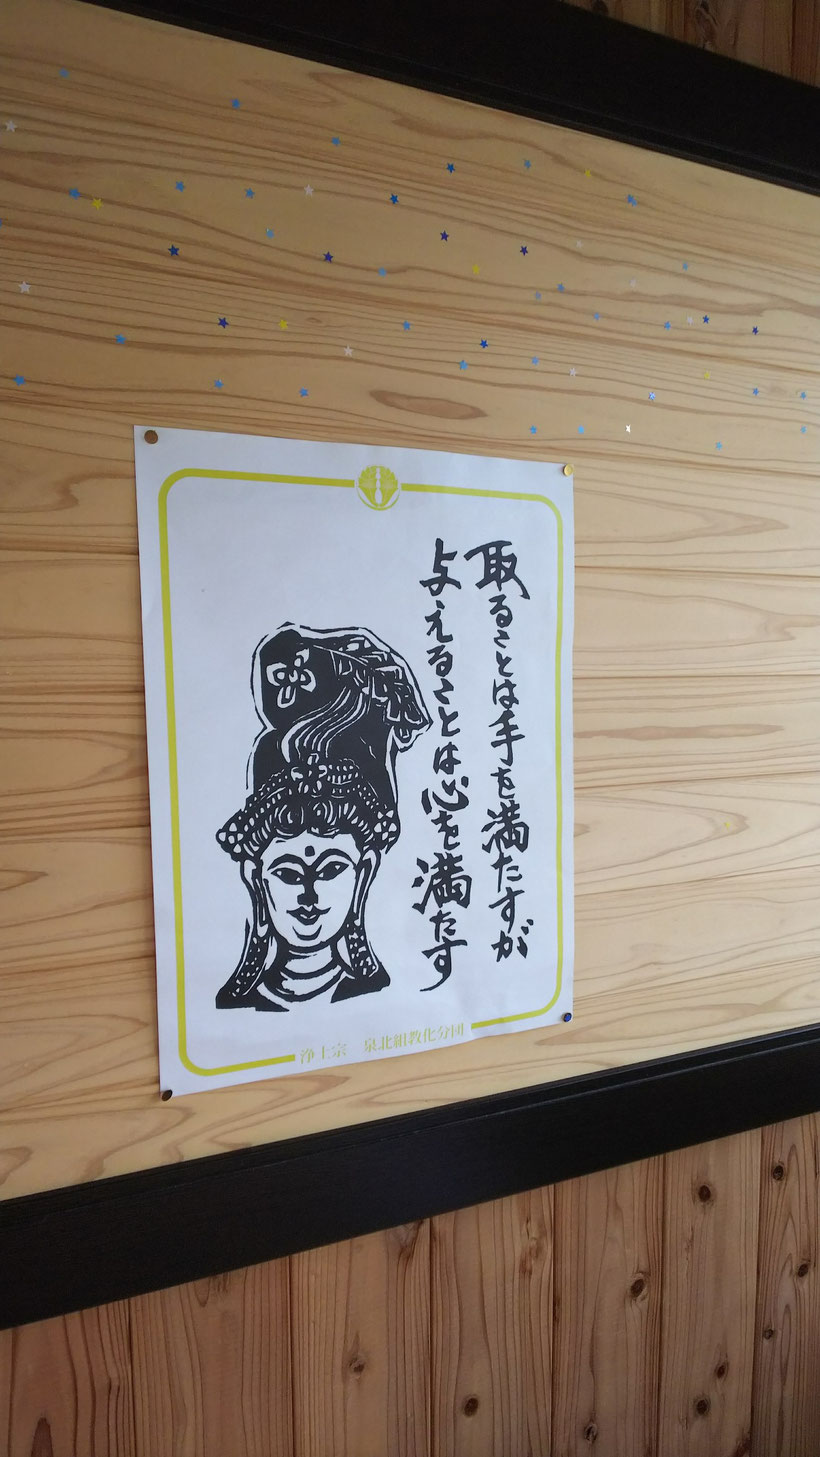 取ることは手を満たすが
与えることは心を満たす
浄土宗　泉北組教化分団